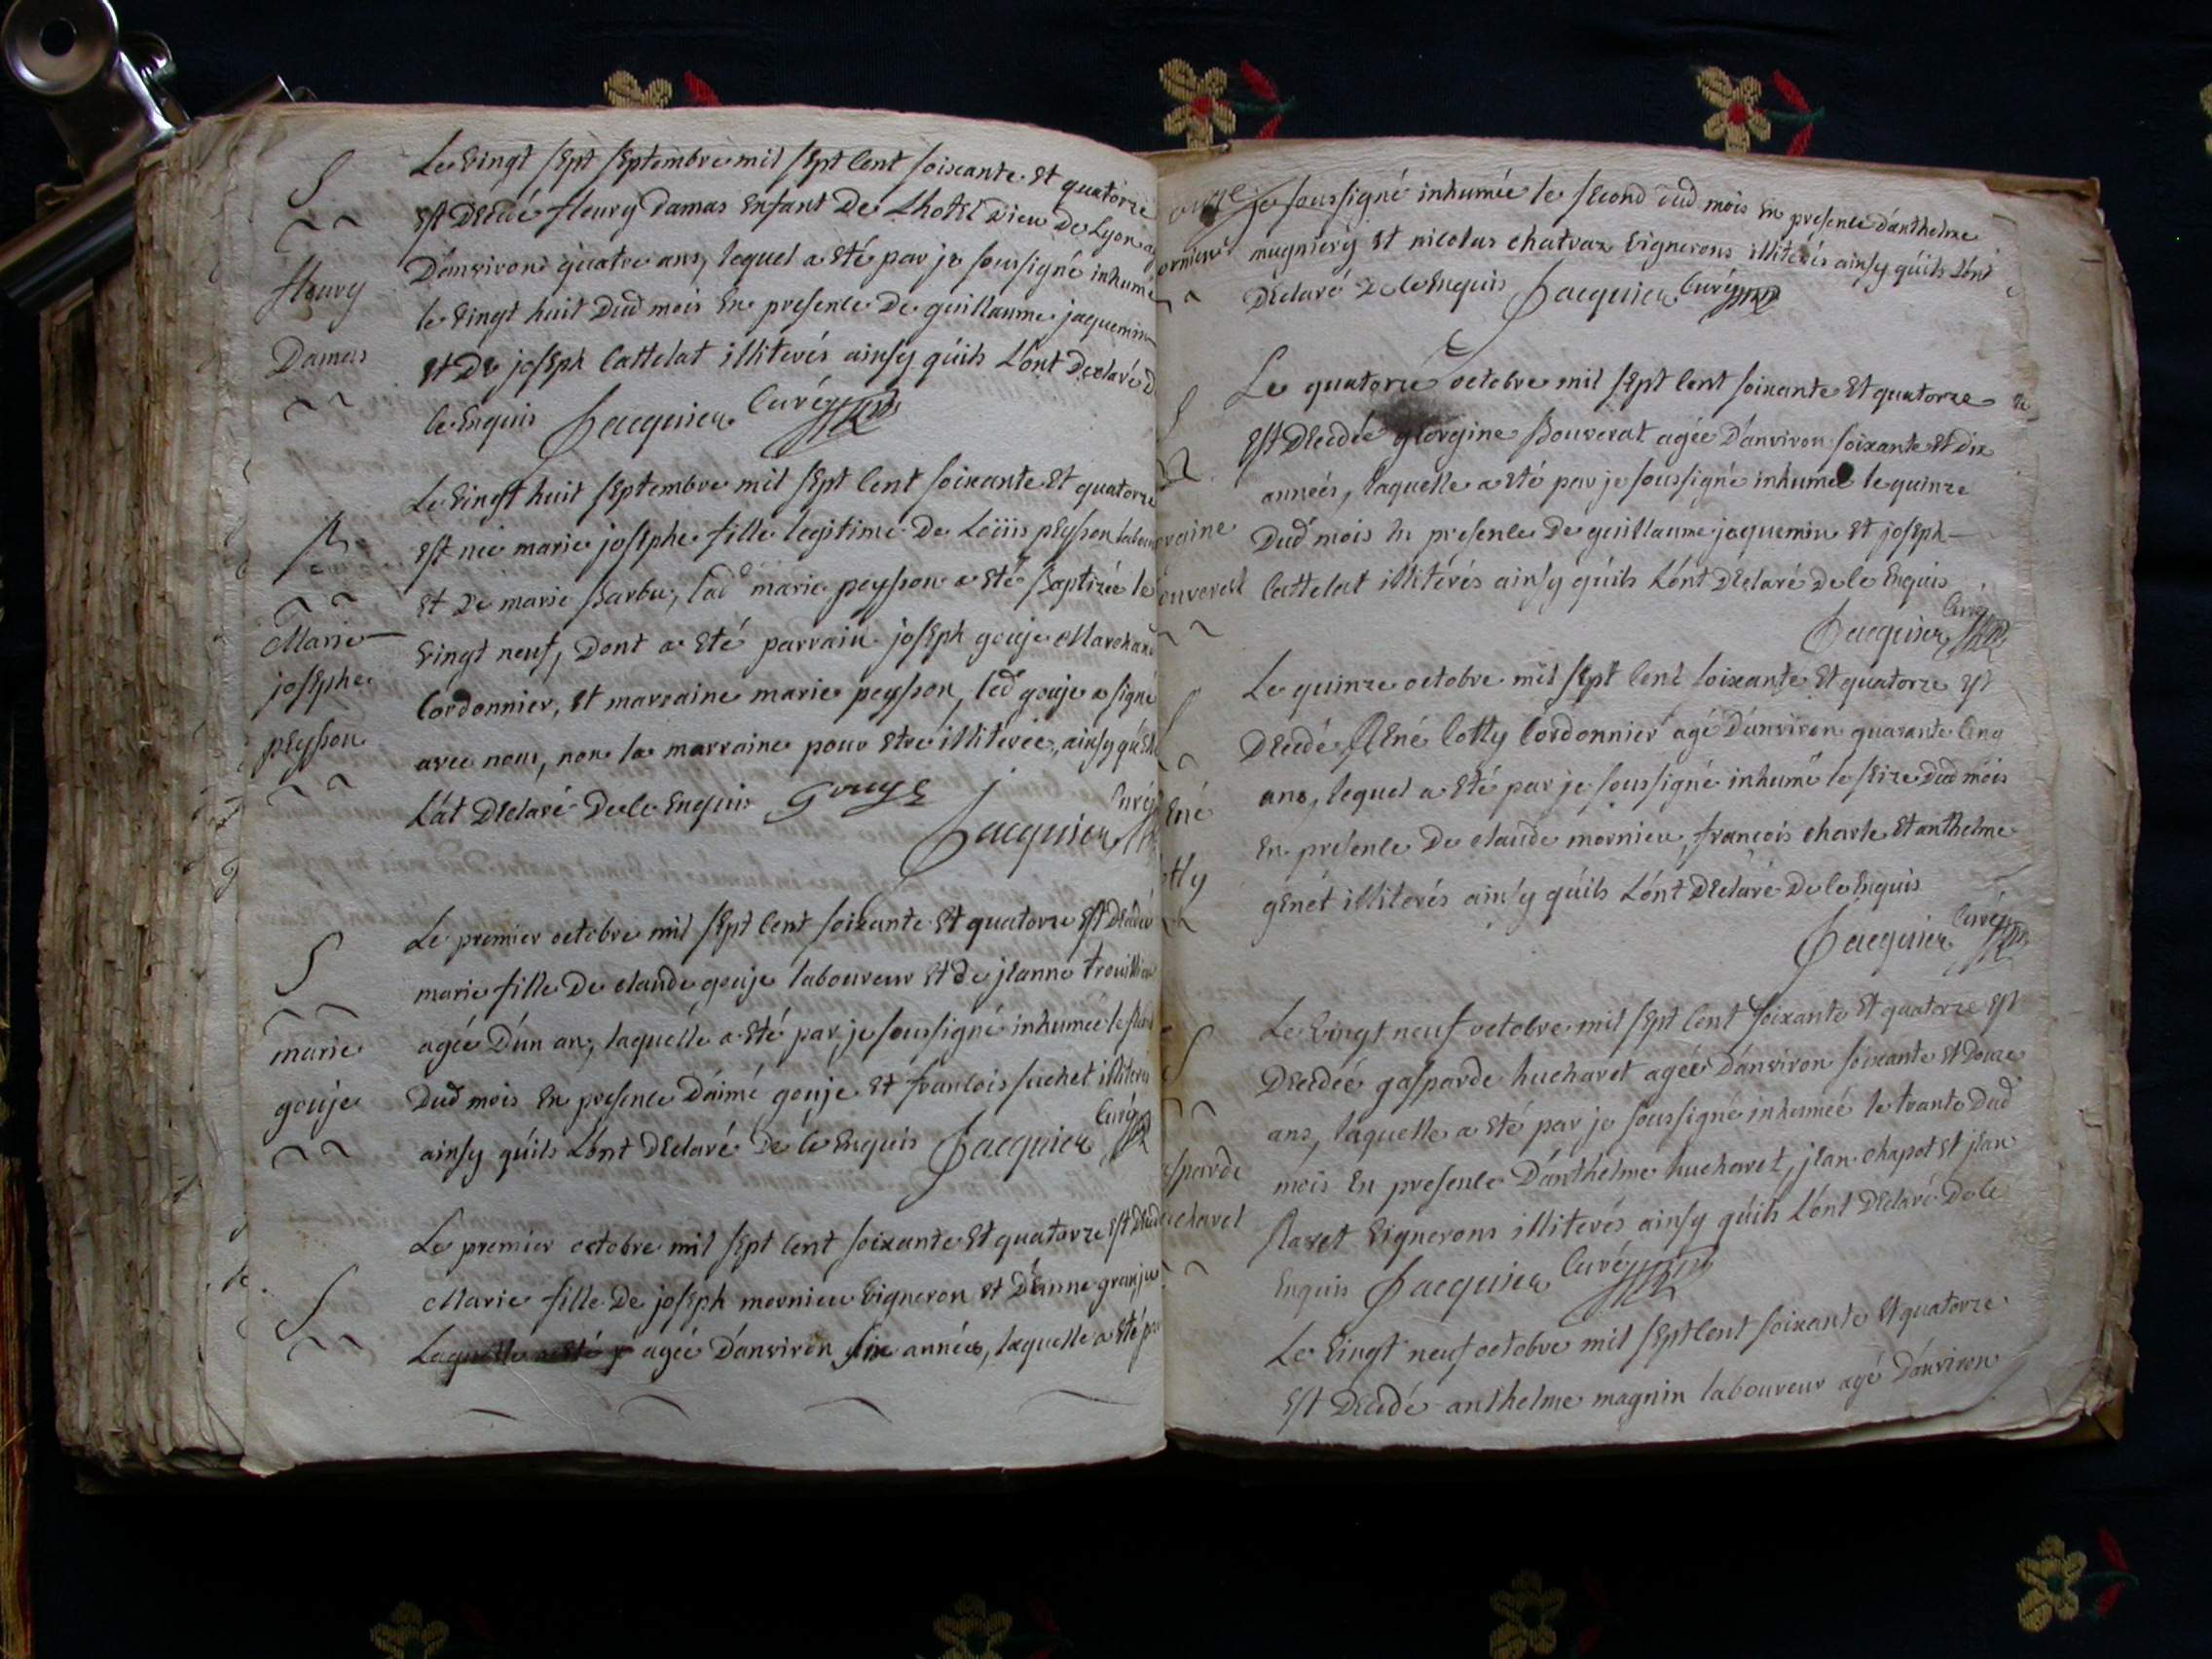 S
fleury
Damas
Le vingt sept septembre mil sept cent soixante et quatorze
est decedé fleury damas enfant de Lhotel dieu de Lyon
d'anviron quatre ans, lequel a eté par je soussigné inhumé
le vingt huit dud mois en presence de guillaume jaquemin
et de joseph cattelat illiterés ainsy qu'ils L'ont declaré d
ce enquis Jacquier curé
B
Marie
josephe
peysson
Le vingt huit septembre mil sept cent soixante et quatorze
est nee marie josephe fille legitime de Loüis peysson
et de marie Barbu, lad marie peysson a eté Baptizée le
vingt neuf, dont a eté parrain joseph gouje Marchand
cordonnier, et marraine marie peysson, led gouje a signé
avec nous, non la marraine pour etre illiterée, ainsy qu'elle
L'at declaré de ce enquis gouge j
Jacquier curé
S
marie
gouje
Le premier octobre mil sept cent soixante et quatorze est decedé
marie fille de claude gouje laboureur et de jeanne
agée d'un an, laquelle a eté par je soussigné inhumée le
dud mois en presence d'aimé gouje et francois suchet illiterés
ainsy qu'ils L'ont declaré de ce enquis Jacquier curé
S
Le premier octobre mil sept cent soixante et quatorze est
Marie fille de joseph mornieu vigneron et d'anne
Laquelle a eté p agée d'anviron six années, laquelle a eté par
je soussigné inhumée le second dud mois en presence d'anthelme
mugniery et nicolas chatraz vignerons illiterés ainsy qu'ils L'ont
declaré de ce enquis Jacquier curé
S
Le quatorze octobre mil sept cent soixante et quatorze
est decedée georgine Bouverat agée d'anviron soixante et dix
années, laquelle a eté par je soussigné inhumée le quinze
dud mois en presence de guillaume jaquemin et joseph
cattelat illiterés ainsy qu'ils L'ont declaré de ce enquis
Jacquier curé
S
Le quinze octobre mil sept cent soixante et quatorze est
decedé René cotty cordonnier agé d'anviron quarante cinq
ans, lequel a eté par je soussigné inhumé le seize dud mois
en presence de claude mornieu, francois charle et anthelme
genet illiterés ainsy qu'ils L'ont declaré de ce enquis
Jacquier curé
S
Le vingt neuf octobre mil sept cent soixante et quatorze est
decedeé gasparde hucharet agée d'anviron soixante et douze
ans, laquelle a eté par je soussigné inhumeé le trante dud
mois en presence d'anthelme hucharet, jean chapot et jean
Ravet vignerons illiterés ainsy qu'ils L'ont declaré de ce
enquis Jacquier curé
Le vingt neuf octobre mil sept cent soixante et quatorze
est decedé anthelme magnin laboureur agé d'anviron